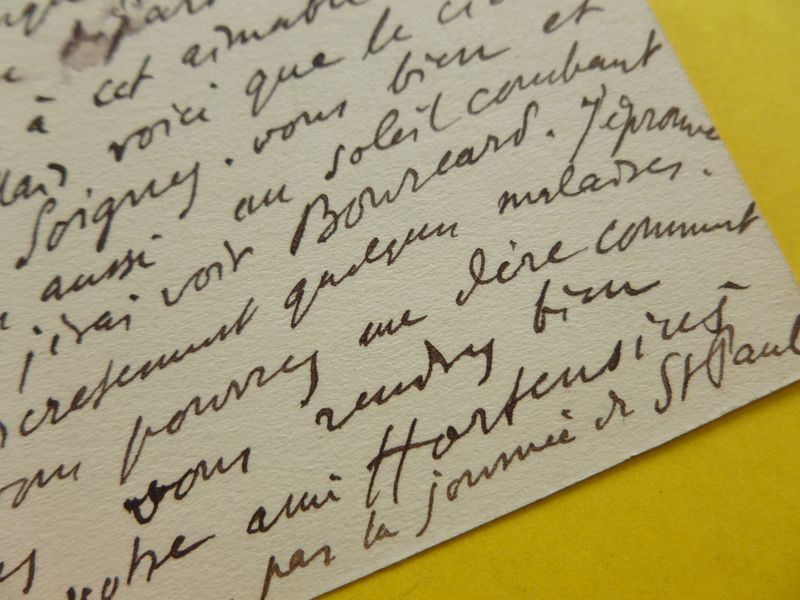 à cet aimable
voici que le
Soignez-vous bien et
aussi au soleil couchant
j'irai voir Bourcard. J'éprouve
quelques malaises.
pourrez me dire comment
vous rendrez bien
votre ami Hortensius
par la journée de St Paul